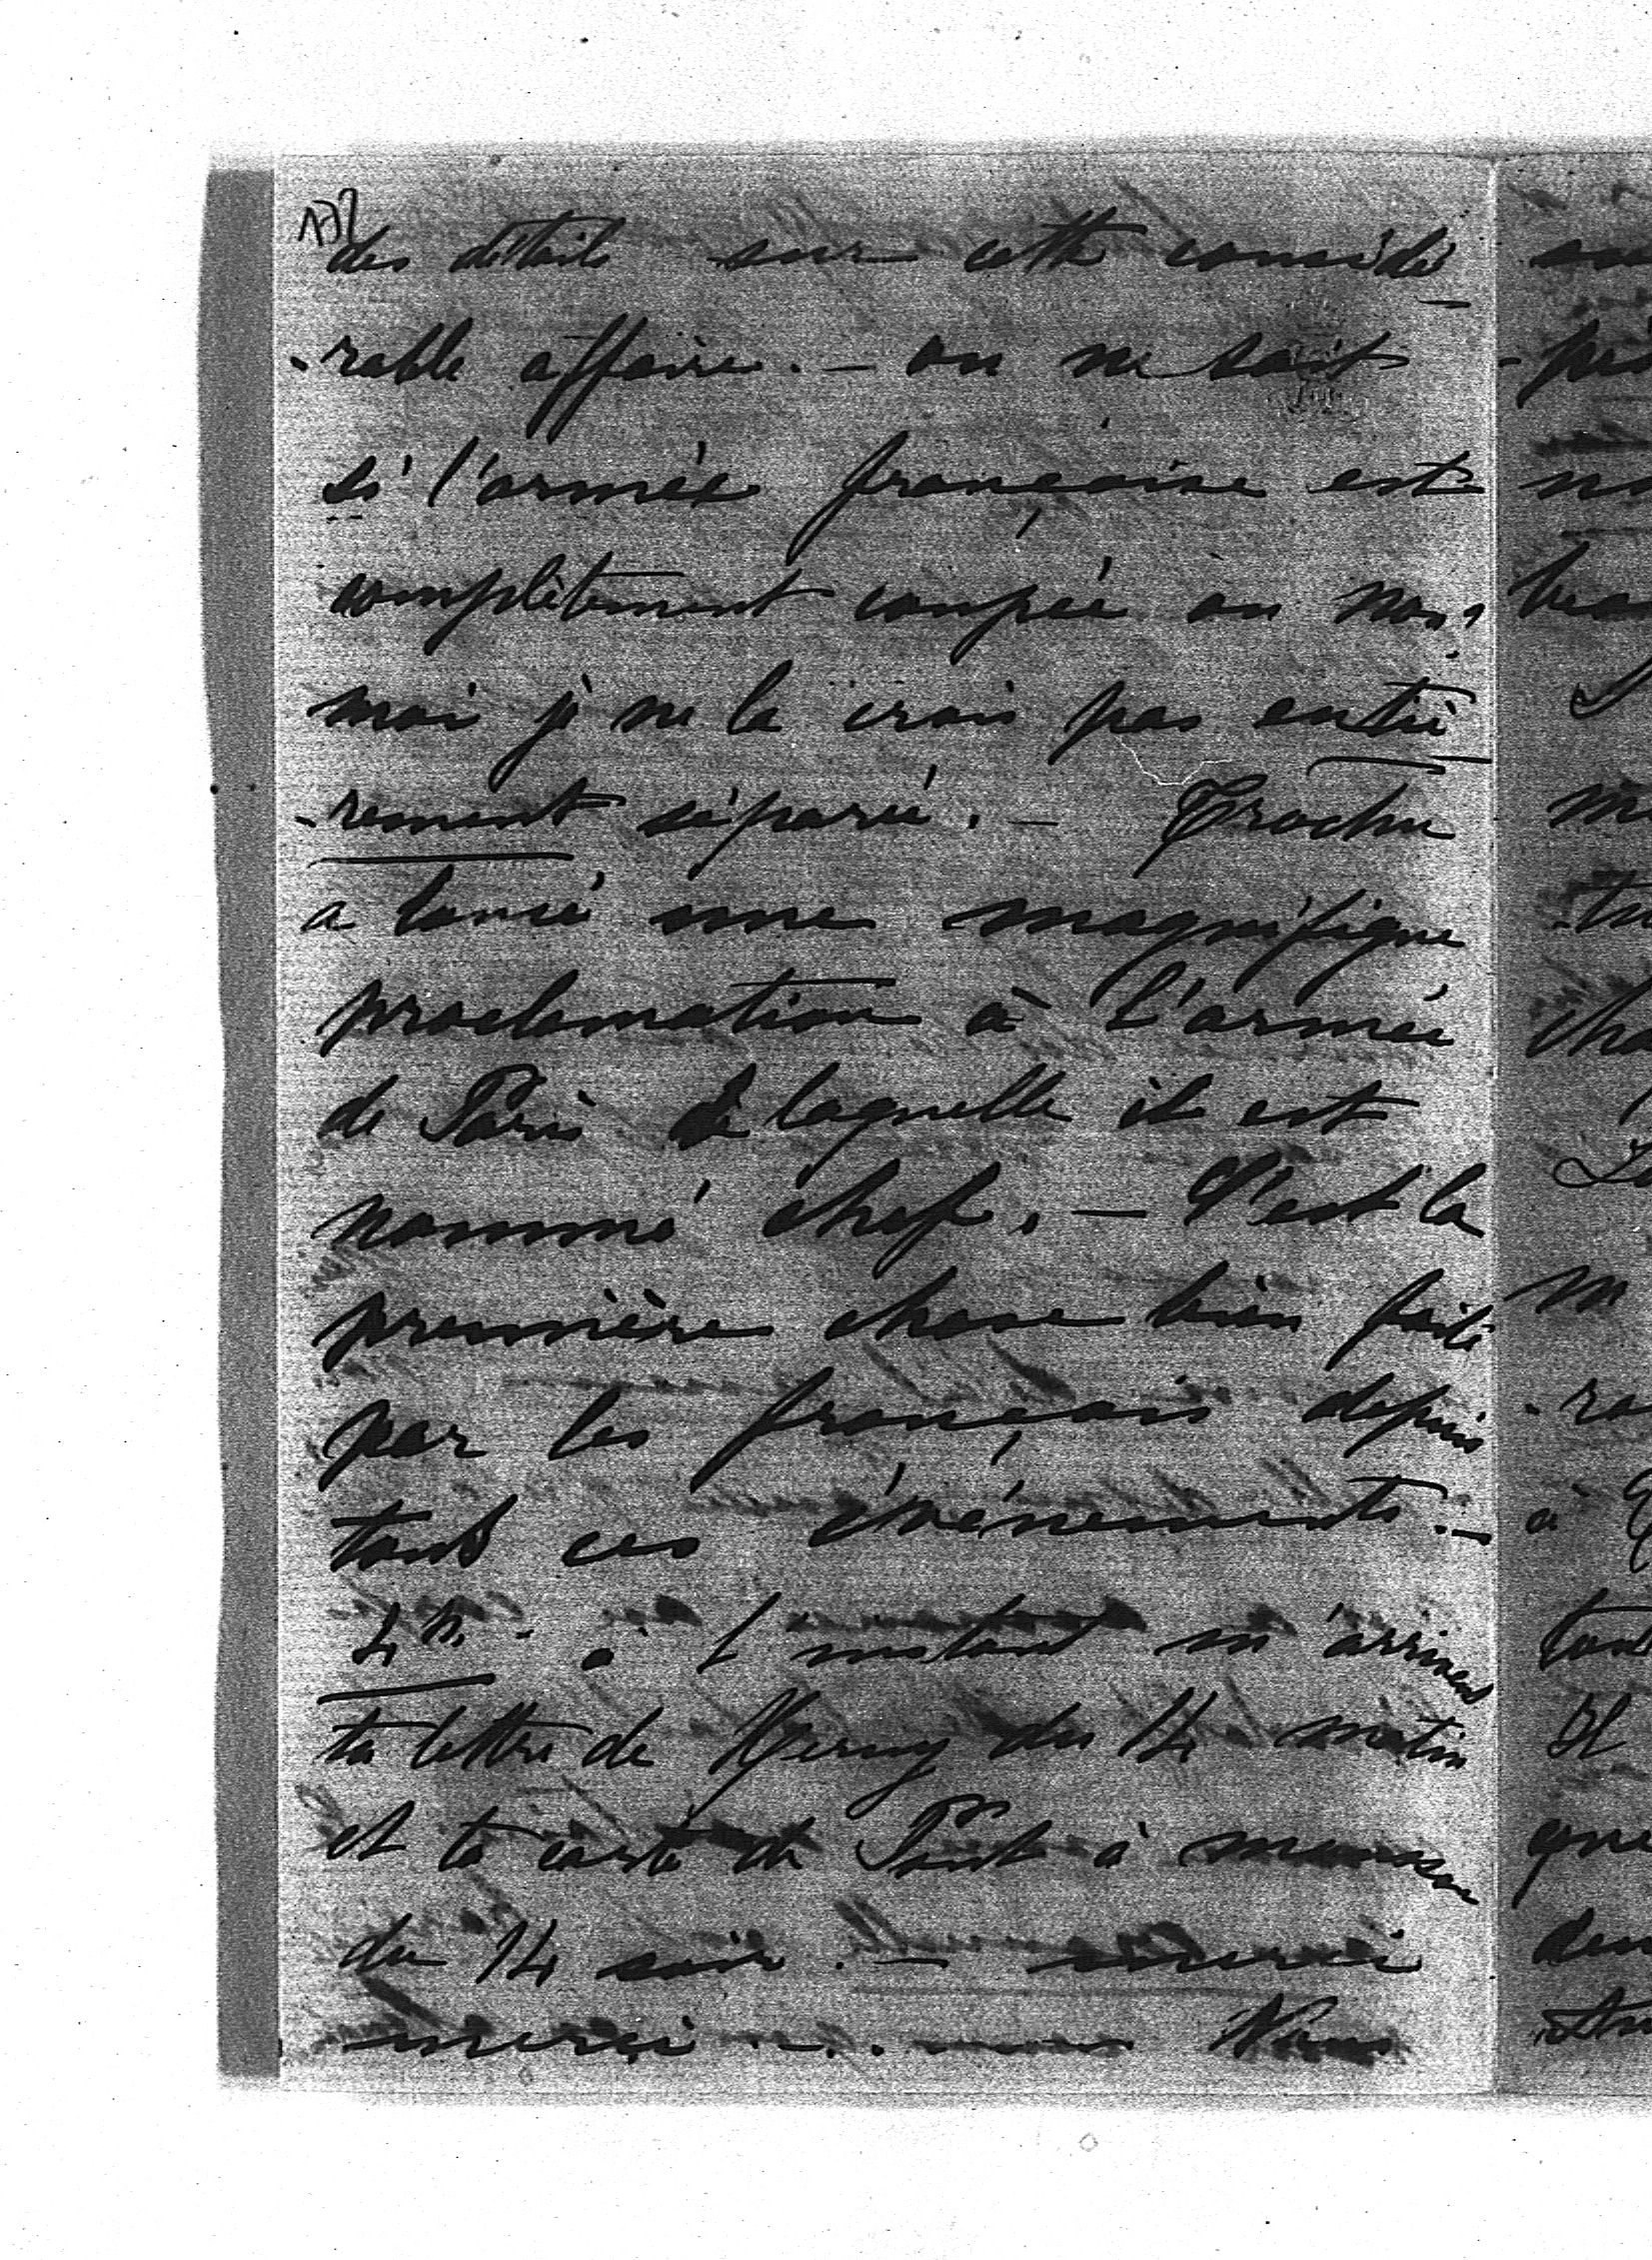 des détails sur cette considé
-rable affaire. - on ne sait
si l'armée française est
complètement coupée ou non,
moi je ne la crois pas entiè
-rement séparée. - Trochu
a lancé une magnifique
proclamation à l'armée
de Paris de laquelle il est
nommé chef. - C'est la
première chose bien faite
par les français depuis
tous ces événements. -
4h. - à l'instant m'arrivent
ta lettre de Verny du 14 matin
et ta carte de Pont à mousson
du 14 soir. - merci
merci ... Nous